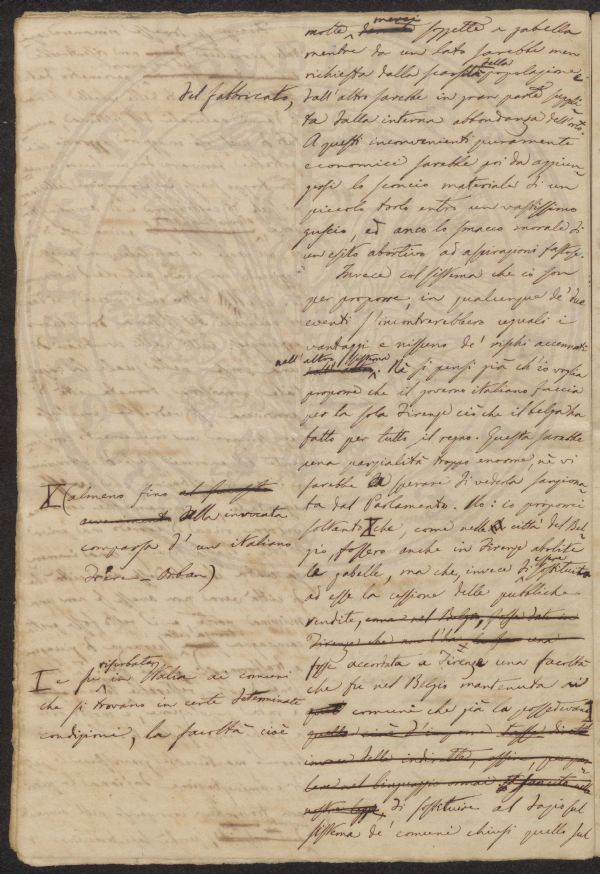 molte, merci soggette a gabella
mentre da un lato sarebbe men
richiesta dalla scarsità della popolazione e
dall'altro sarebbe in gran parte suppli
ta dalla interna abbondanza dell'orto.
A questi inconvenienti puramente
economici sarebbe poi da aggiun
gersi lo sconcio materiale di un
piccolo torlo entro un vastissimo
guscio, ed anco lo smacco morale di
un esito abortivo ad aspirazioni fastose.
Invece col sistema che ci son
per proporre, in qualunque de' due
eventi s'incontrerebbero uguali i
vantaggi e nissuno de' rischi accennati
nell'altro sistema. Nè si pensi già ch'io voglia
proporre che il governo italiano faccia
per la sola Firenze ciò che il belga ha
fatto per tutto il regno. Questa sarebbe
una parzialità troppo enorme, nè vi
sarebbe da sperare di vederla sanziona
ta dal Parlamento. No: io proporrei
soltanto X che, come nelle città del Bel
gio, fossero anche in Firenze abolite
le gabelle, ma che, invece di essere sostituita
ad esse la cessione delle pubbliche
rendite,
fosse accordata a Firenze una facoltà
che fu nel Belgio mantenuta ai
comuni che già la possedevano I
di sostituire al dazio sul
sistema de' comuni chiusi quello sul
del fabbricato,
X (almeno fino
alla invocata
comparsa d'un italiano
Frère-Orban)
I e fu riserbata in Italia ai comuni
che si trovano in certe determinate
condizioni, la facoltà cioè